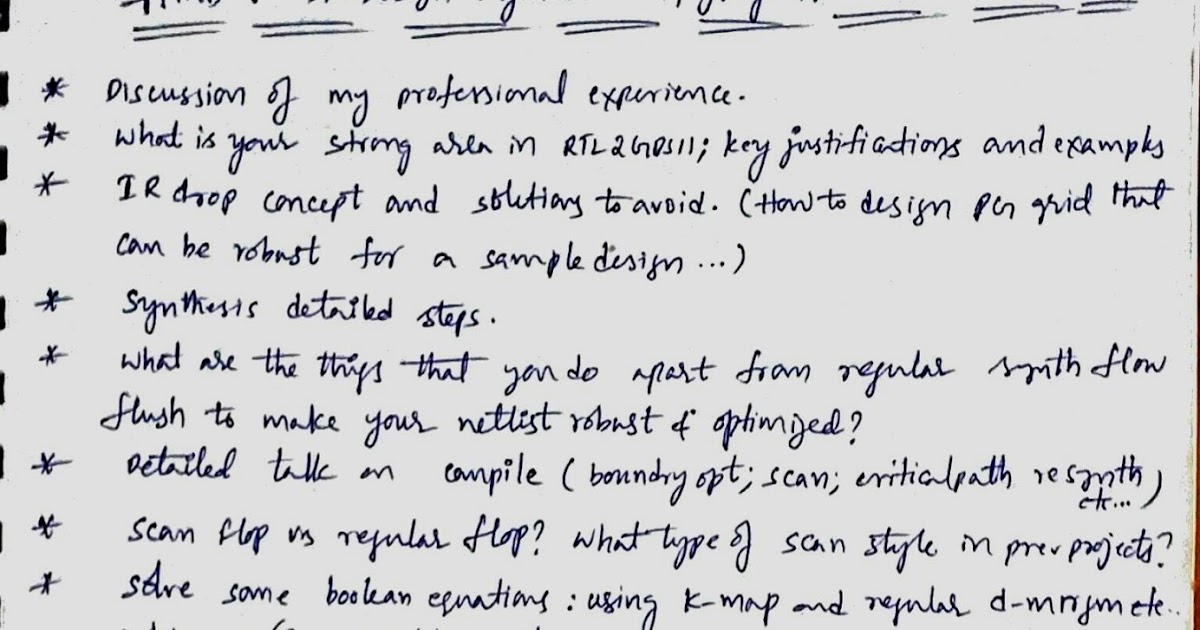 * Discussion of my professional experience.
* What is your strong area in RTL2GDSII; key justifications and examples
* IR drop concept and solutions to avoid. (How to design grid that
can be robust for a sample design...)
* Synthesis detailed steps.
* What are the thigs that you do apart from regular synth flow
flush to make your netlist robust & optimized?
* Detailed talk on compile (boundry opt; scan; criticalpath resynth
etc...)
* Scan flop vs regular flop? What type of scan style in prev projects?
* Solve some boolean equations: using K-map and regular etc..